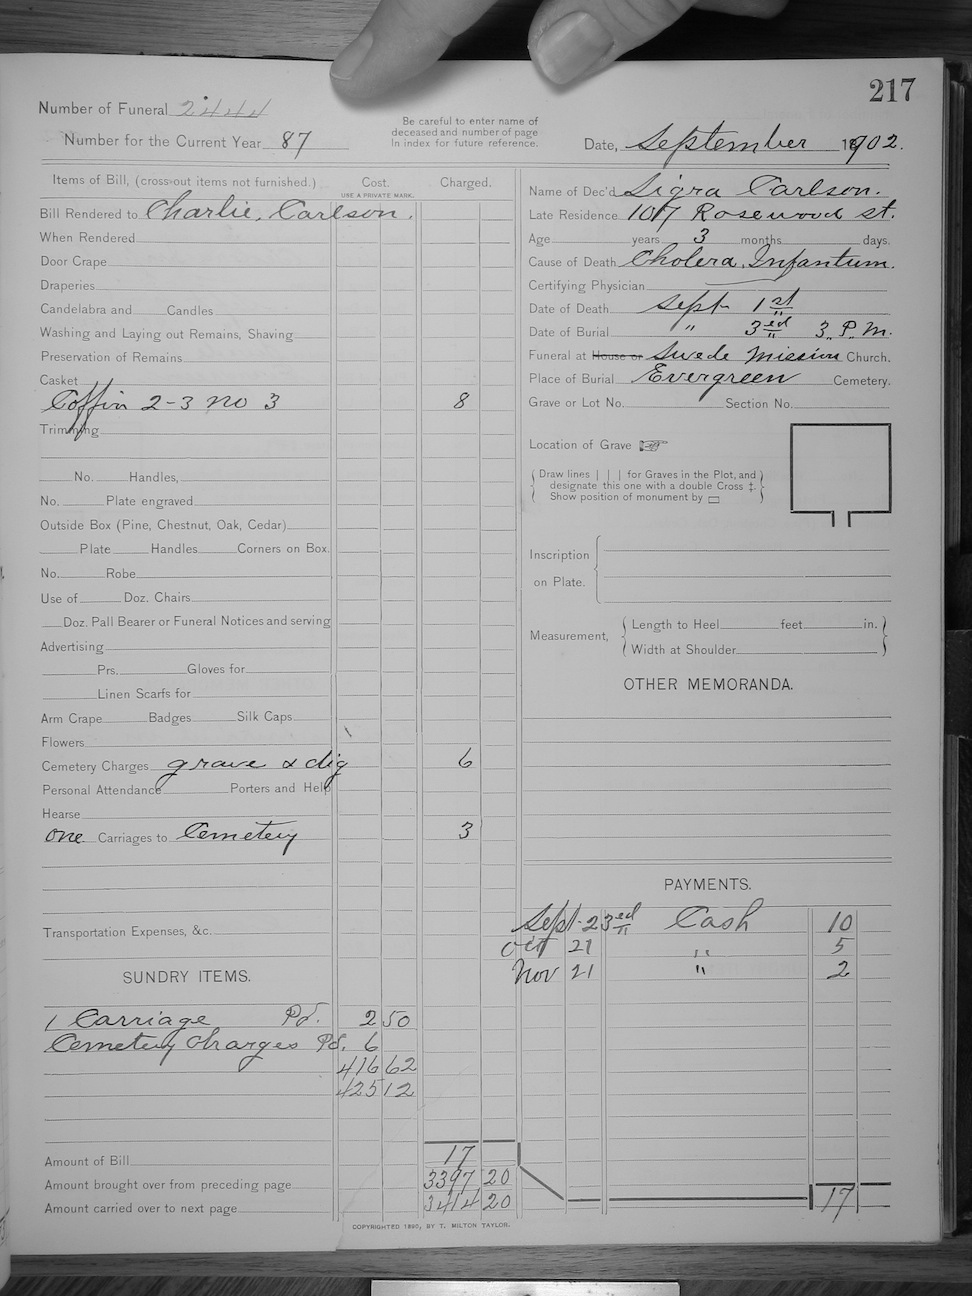 217
Number of Funeral 2444
Number for the Current Year 87
Be careful to enter name of
deceased and number of page
in index for future reference.
Date, September 1902.
Items of Bill, (cross out items not furnished.) Cost. Charged.
USE A PRIVATE MARK.
Bill Rendered to Charlie, Carlson.
When Rendered
Door Crape
Draperies
Candelabra and Candles
Washing and Laying out Remains, Shaving
Preservation of Remains
Casket
Coffin 2-3 no 3 8
Trimming
No. Handles,
No. Plate engraved
Outside Box (Pine, Chestnut, Oak, Cedar)
Plate Handles Corners on Box.
No. Robe
Use of Doz. Chairs
Doz. Pall Bearer or Funeral Notices and serving
Advertising
Prs. Gloves for
Linen Scarfs for
Arm Crape Badges Silk Caps
Flowers
Cemetery Charges grave & dig 6
Personal Attendance Porters and Help
Hearse
one Carriages to Cemetery 3
Transportation Expenses, &c.
SUNDRY ITEMS.
1 Carriage Pd. 2 50
Cemetery Charges Pd. 6
416 62
425 12
Amount of Bill 17
Amount brought over from preceding page 3397 20
Amount carried over to next page 3414 20
Name of Dec'd Sigra Carlson.
Late Residence 1017 Rosewood st.
Age years 3 months days.
Cause of Death Cholera, Infantum.
Certifying Physician
Date of Death Sept 1st
Date of Burial " 3ed 3, P.M.
Funeral at House or Swede Mission Church.
Place of Burial Evergreen Cemetery.
Grave or Lot No. Section No.
Location of Grave ☞
Draw lines | | | for Graves in the Plot, and
designate this one with a double Cross ‡.
Show position of monument by ▭
Inscription
on Plate.
Measurement, Length to Heel feet in.
Width at Shoulder
OTHER MEMORANDA.
PAYMENTS.
Sept. 23ed Cash 10
Oct 21 " 5
Nov 21 " 2
17
COPYRIGHTED 1890, BY T. MILTON TAYLOR.